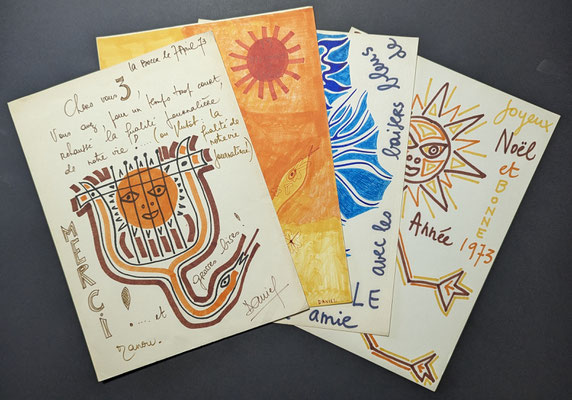 La Bocca le 7 April 73
Chers vous 3!
Vous avez, pour un temps trop court,
rehaussé la qualité journalière
de notre vie!..... (ou plutôt la qualité de
notre vie
journalière)
MERCI!
grosses bises!
..... et
Manou.
Daniel
DANIEL
de
baisers bleus
avec les
LE
amie
Joyeux
Noël
et
BONNE
Année
1973